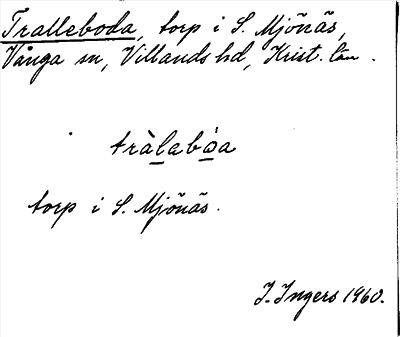 Tralleboda, torp i S. Mjönäs,
Vånga sn, Villands hd, Krist. län.
tràlabòa
torp i S. Mjönäs.
I. Ingers 1960.